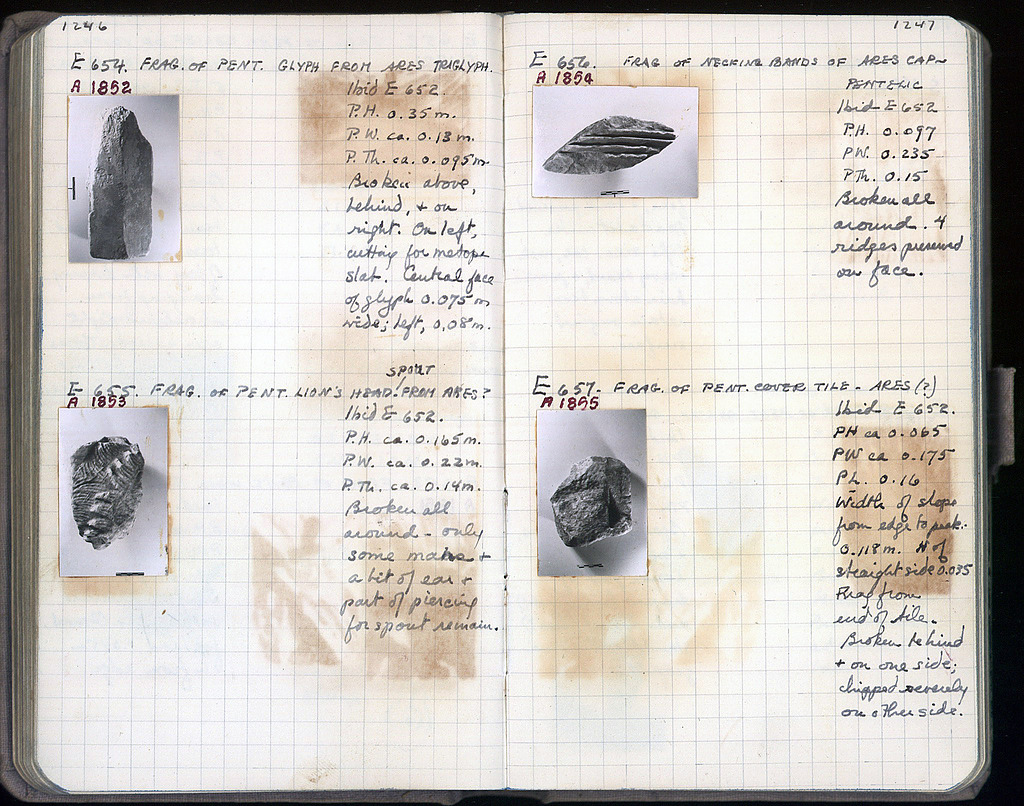 1246
E 654. FRAG. OF PENT. GLYPH FROM ARES TRIGLYPH.
A 1852
Ibid E 652.
P.H. 0.35 m.
P.W. ca. 0.13 m.
P.Th. ca. 0.095 m.
Broken above,
behind, + on
right. On left,
cutting for metope
slab. Central face
of glyph 0.075 m
wide; left, 0.08 m.
SPOUT
E 655. FRAG. OF PENT. LION'S HEAD ^ FROM ARES?
A 1853
Ibid E 652.
P.H. ca. 0.165 m.
P.W. ca. 0.22 m.
P.Th. ca. 0.14 m.
Broken all
around - only
some mane +
a bit of ear +
part of piercing
for spout remain.
1247
E 656. FRAG OF NECKING BANDS OF ARES CAP-
A 1854
PENTELIC
Ibid E 652
P.H. 0.097
PW. 0.235
P.Th. 0.15
Broken all
around. 4
ridges preserved
on face.
E 657. FRAG. OF PENT. COVER TILE - ARES (?)
A 1855
Ibid E 652.
PH ca 0.065
PW ca 0.175
PL. 0.16
Width of slope
from edge to peak.
0.118 m. H of
straight side 0.035
Frag from
end of tile.
Broken behind
+ on one side;
chipped severely
on other side.